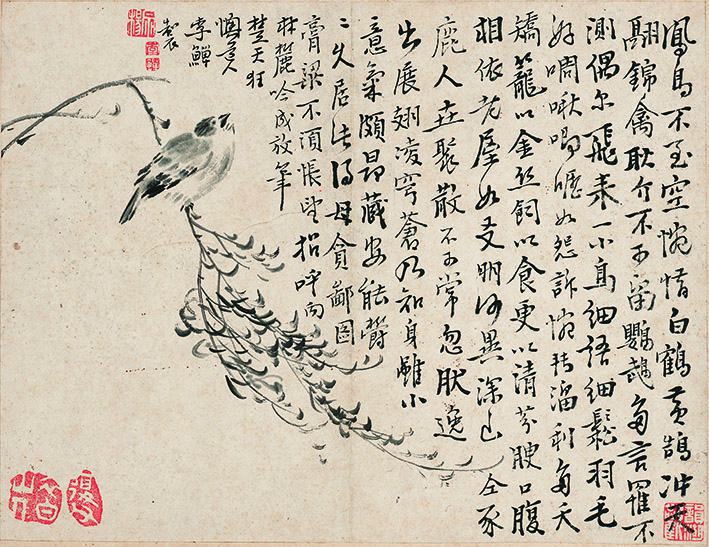 鳳鳥不至空惋惜白鶴黃鵠沖天
翮錦禽耿介不可留鸚鵡多言羅不
測偶尔飛來一小鳥細語細鬆羽毛
好啁啾唧嚦如怨訴惋轉溜利多夭
矯籠以金絲飼以食更以清芬腴口腹
相依老屋如友朋何異深山仝豕
鹿人世聚散不可常忽肰逸
出展翅凌穹蒼乃知身雖小
意氣頗昂藏安能欝
二久居此得毋貪鄙圖
膏粱不須悵望招呼向
林麓吟成放筆
楚天狂
懊道人
李鱓
製